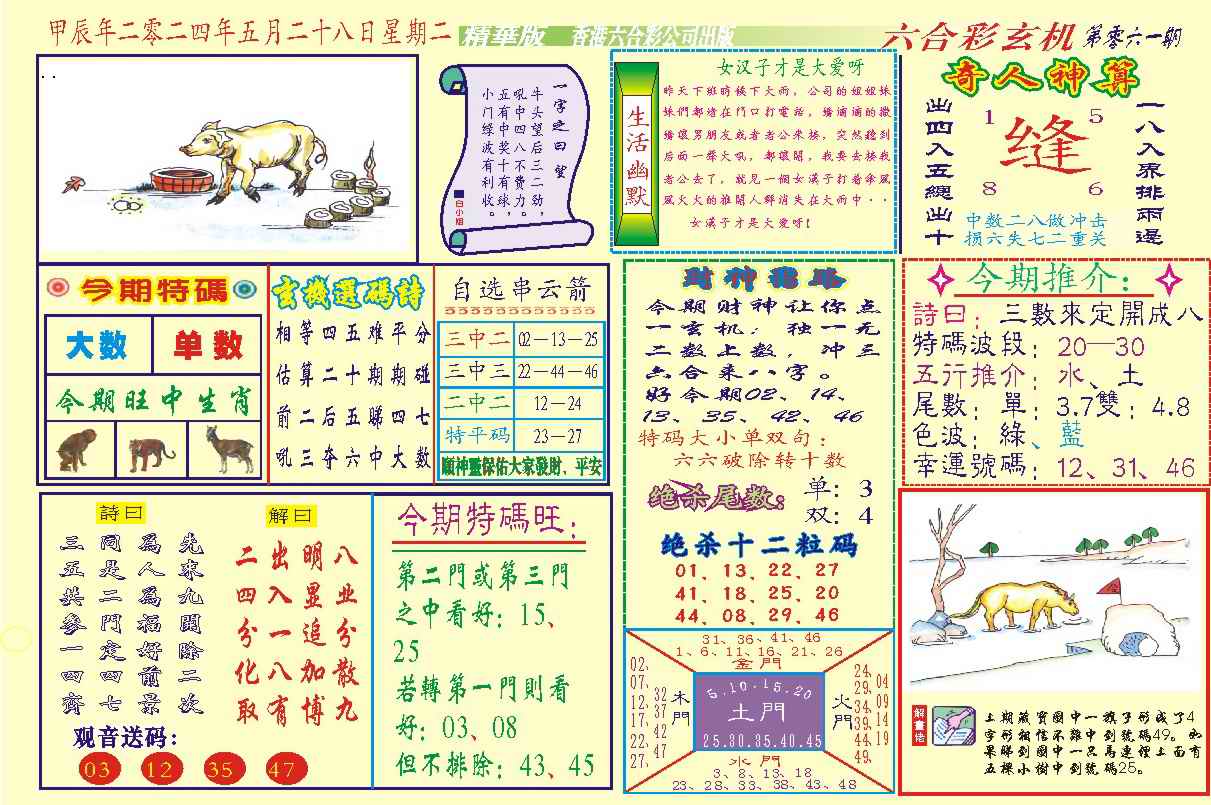 甲辰年二零二四年五月二十八日星期二
精華版 香港六合彩公司出版
六合彩玄机 第零六一期
一字之曰：望
牛头望后三二劲，
吼中四八不费力，
五有中奖十有球，
小门绿波有利收。
白小姐
生活幽默
女汉子才是大爱呀
昨天下班時候下大雨，公司的姐姐妹
妹們都堵在門口打電話，嬌滴滴的撒
嬌讓男朋友或者老公来接，突然聽到
后面一聲大吼，都讓開，我要去接我
老公去了，就見一個女漢子打着傘風
風火火的推開人群消失在大雨中··
女漢子才是大爱呀！
奇人神算
出四入五總出十
1 5
缝
8 6
一八入界排兩邊
中数二八做冲击
损六失七二重关
今期特碼
大数 单数
今期旺中生肖
玄機選碼詩
相等四五难平分
估算二十期期碰
前二后五睇四七
吼三夺六中大数
自选串云箭
三中二 02－13－25
三中三 22－44－46
二中二 12－24
特平码 23－27
願神靈保佑大家發財、平安
今期财神让你点
一玄机：独一无
二数上数，冲三
六合来八字。
好今期02、14、
13、35、42、46
特码大小单双句：
六六破除转十数
绝杀尾数：
单：3
双：4
绝杀十二粒码
01、13、22、27
41、18、25、20
44、08、29、46
今期推介：
詩曰：三數來定開成八
特碼波段：20—30
五行推介：水、土
尾數：單：3.7雙：4.8
色波：綠、藍
幸運號碼：12、31、46
詩曰
先來九開除二次
為人為福好前景
同是二門定四七
三五共參一四齊
解曰
八业分散九
明显追加博
出入一八有
二四分化取
观音送码：
03 12 35 47
今期特碼旺：
第二門或第三門
之中看好：15、
25
若轉第一門則看
好：03、08
但不排除：43、45
31、36、41、46
1、6、11、16、21、26
金門
02、07、12、17、22、27、
32、37、42、47
木門
5.10.15.20
土門
25.30.35.40.45
火門
24、29、34、39、44、49、
04、09、14、19
水門
3、8、13、18
23、28、33、38、43、48
解畫佬
上期藏寶圖中一旗子形成了4
字形相信不難中到號碼49。如
果睇到圖中一只馬連徑上面有
五棵小樹中到號碼25。